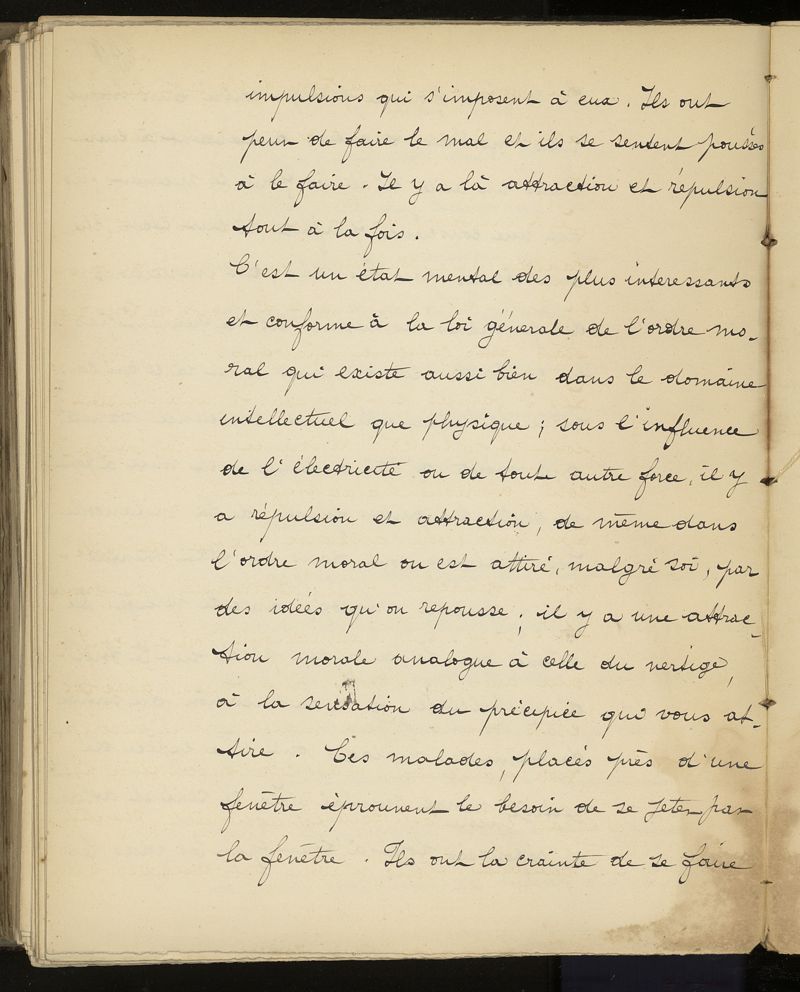 impulsions qui s'imposent à eux. Ils ont
peur de faire le mal et ils se sentent poussés
à le faire. Il y a là attraction et répulsion
tout à la fois.
C'est un état mental des plus interessants
et conforme à la loi génerale de l'ordre mo-
ral qui existe aussi bien dans le domaine
intellectuel que physique ; sous l'influence
de l'électricité ou de toute autre force, il y
a répulsion et attraction, de même dans
l'ordre moral on est attiré, malgré soi, par
des idées qu'on repousse ; il y a une attrac-
tion morale analogue à celle du vertige,
à la sensation du précipice qui vous at-
tire. Ces malades, placés près d'une
fenêtre éprouvent le besoin de se jeter par
la fenêtre. Ils ont la crainte de se faire